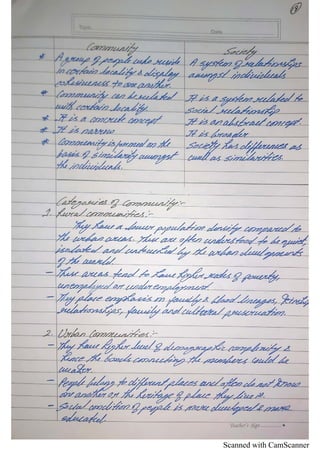 9
Topic
Date
Community
Society
* A group of people who reside
in certain locality & display
cohesiveness to one another.
A system of relationships
amongst individuals.
* Community can be related
with certain locality.
It is a system related to
social relationship
* It is a concrete concept
It is an abstract concept
* It is narrow
It is broader
* Community is formed on the
basis of similarity amongst
the individuals.
Society has differences as
well as similarities.
Categories of Community:-
1. Rural communities:-
They have a lower population density compared to
the urban areas. They are often understood to be quiet,
isolated and untouched by the urban developments
of the world.
- These areas tend to have higher rates of poverty,
unemployed or underemployment.
- They place emphasis on family & blood lineages,
relationships, family and cultural preservation.
2. Urban Communities:-
- They have higher level of demographic complexity &
hence the bonds connecting the members could be
weaker.
- People belong to different places and often do not know
one another or the heritage of place they live in.
- Social condition of people is more developed & more
educated.
Teacher's Sign
Scanned with CamScanner